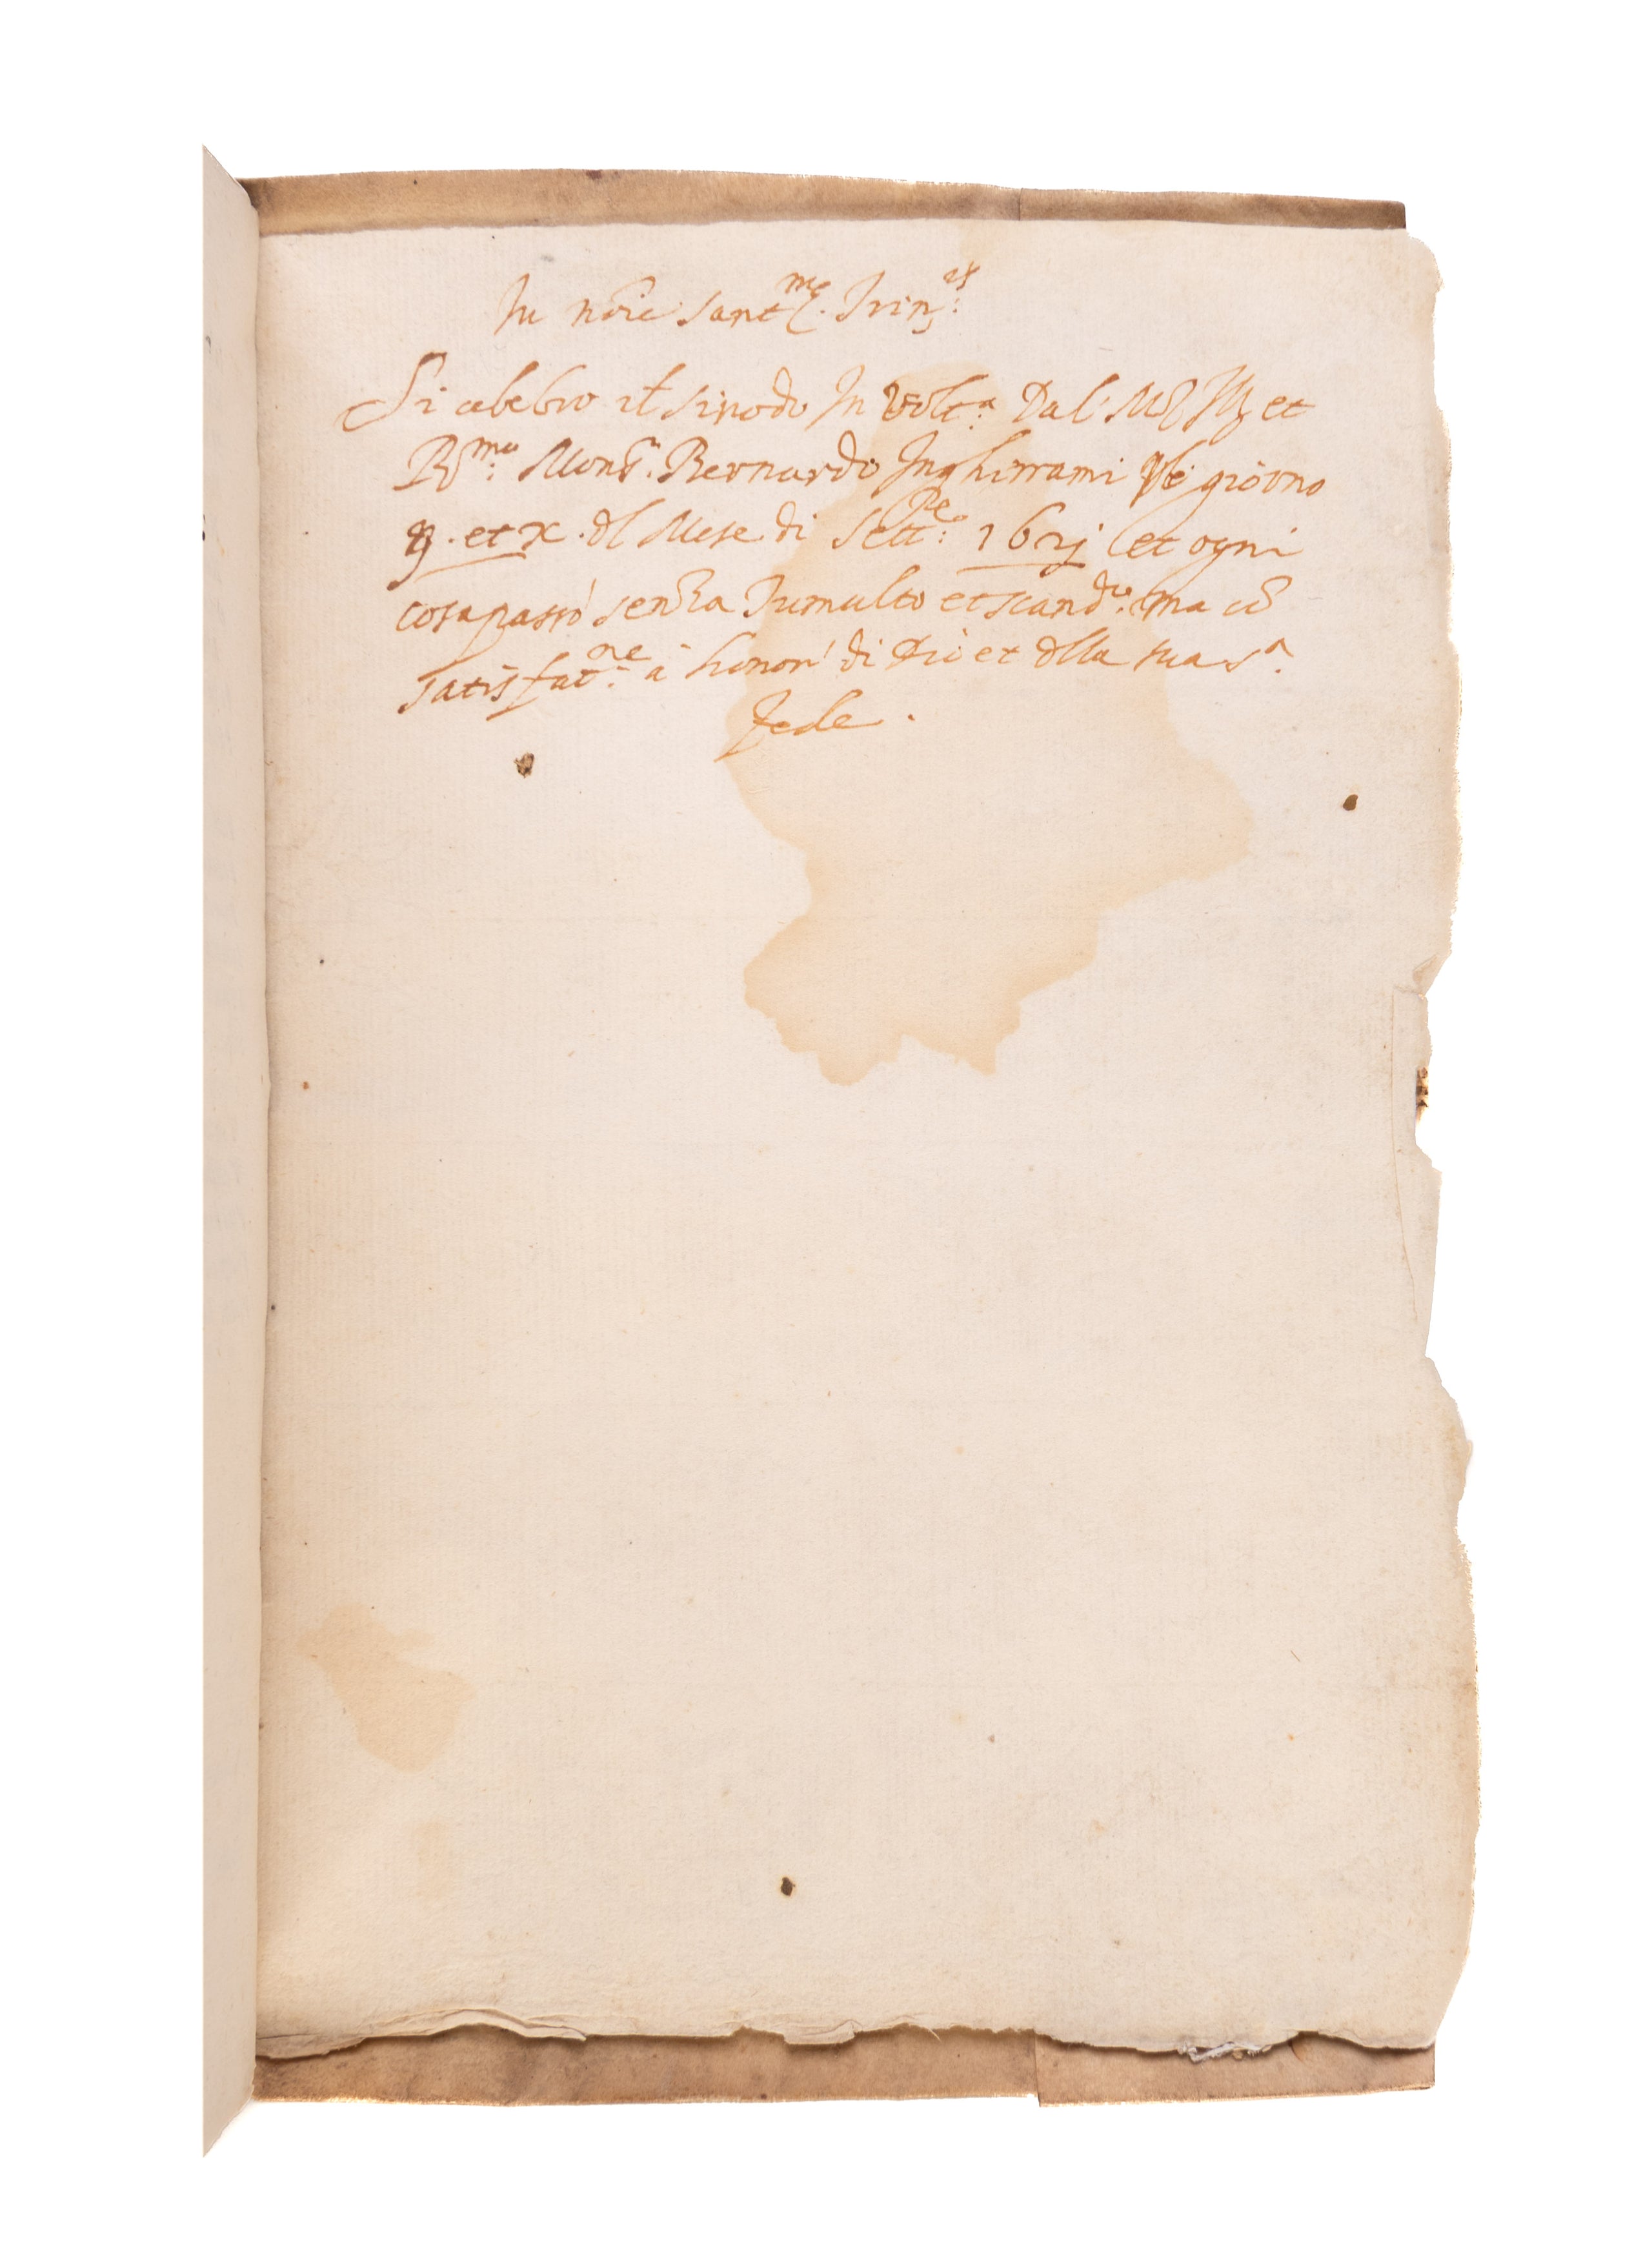 In no͞ie Sant.^me Trin.^tis
Si celebro il sinodo In Volt.^a Dal' Mol. Ill. et
R.^mo Mons.^r Bernardo Inghirrami giorno
9. et x. dl Mese di Sett.^re 1621 et ogni
cosa passò senza Tumulto et scand.^lo ma cō
satisfat.^ne à honor' di Dio et dlla sua S.^a
fede.